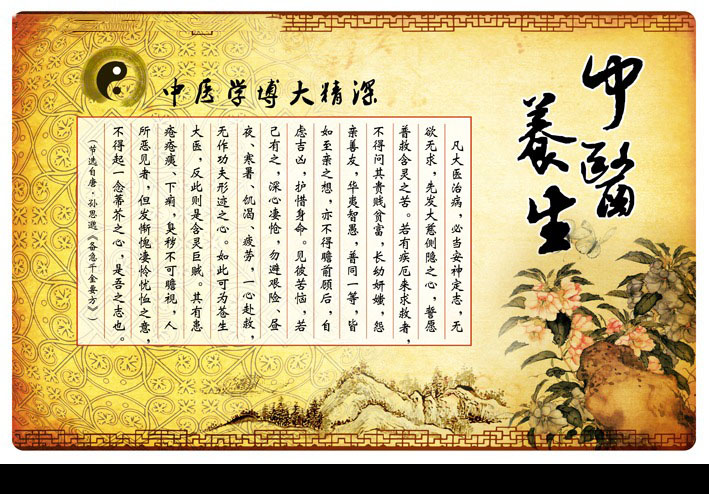 中醫養生
中医学博大精深
凡大医治病，必当安神定志，无
欲无求，先发大慈恻隐之心，誓愿
普救含灵之苦。若有疾厄来求救者，
不得问其贵贱贫富，长幼妍媸，怨
亲善友，华夷智愚，普同一等，皆
如至亲之想，亦不得瞻前顾后，自
虑吉凶，护惜身命。见彼苦恼，若
己有之，深心凄怆，勿避艰险、昼
夜、寒暑、饥渴、疲劳，一心赴救，
无作功夫形迹之心。如此可为苍生
大医，反此则是含灵巨贼。其有患
疮痍、下痢，臭秽不可瞻视，人
所恶见者，但发惭愧凄怜忧恤之意，
不得起一念蒂芥之心，是吾之志也。
（节选自唐·孙思邈《备急千金要方》）